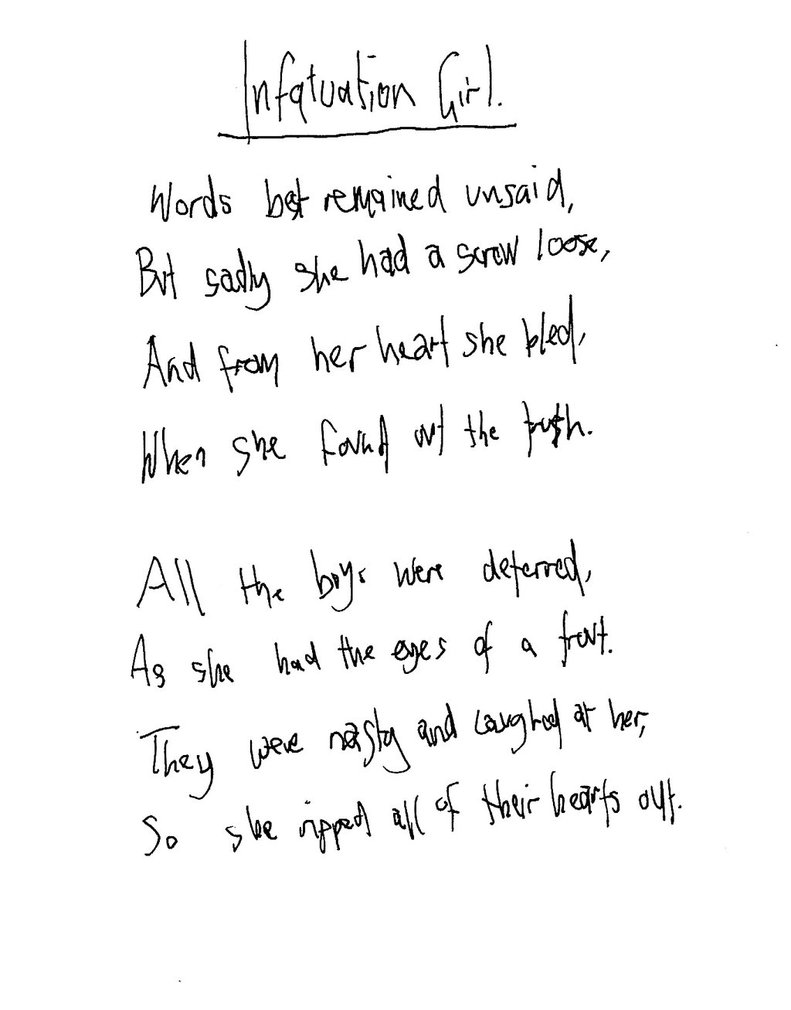 Infatuation Girl.
Words best remained unsaid,
But sadly she had a screw loose,
And from her heart she bled,
When she found out the truth.
All the boys were deferred,
As she had the eyes of a trout.
They were nasty and laughed at her,
So she ripped all of their hearts out.